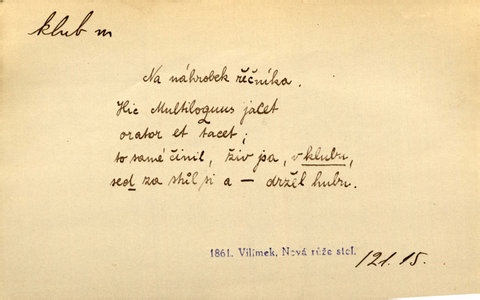 klub m
Na náhrobek řečníka.
Hic Multiloquus jacet
orator et tacet;
to samé činil, živ jsa, v klubu,
sed za stůl si a — držel hubu.
1861. Vilímek, Nová růže stol.
121.15.